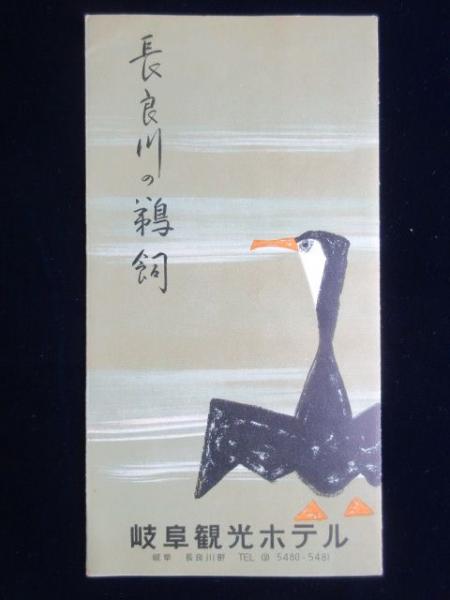 長良川の鵜飼
岐阜観光ホテル
岐阜 長良川畔 TEL ② 5480-5481